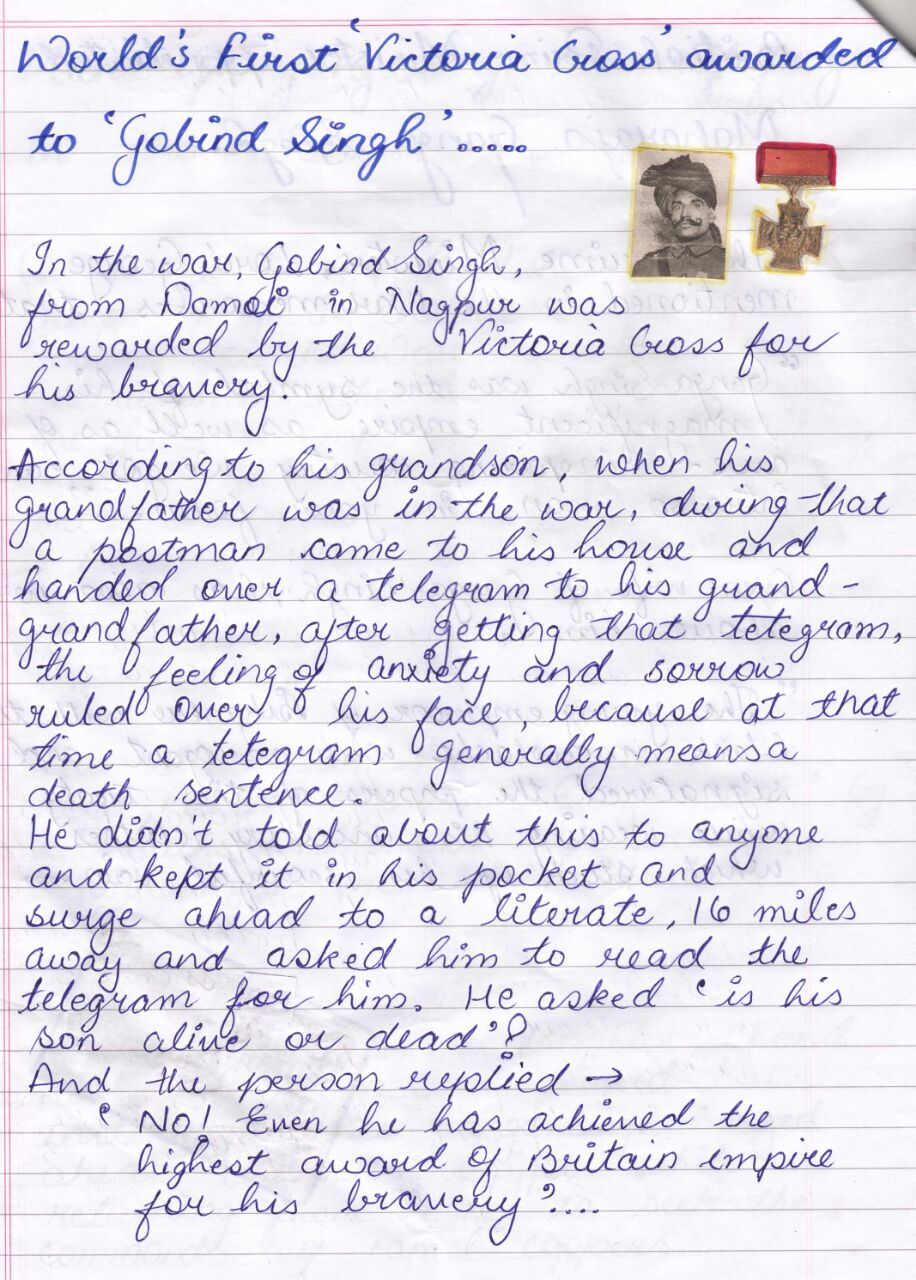 World's First 'Victoria Cross' awarded
to 'Gobind Singh'.....
In the war, Gobind Singh,
from Damoi in Nagpur was
rewarded by the Victoria Cross for
his bravery.
According to his grandson, when his
grandfather was in the war, during that
a postman came to his house and
handed over a telegram to his grand-
grandfather, after getting that tetegram,
the feeling of anxiety and sorrow
ruled over his face, because at that
time a tetegram generally means a
death sentence.
He didn't told about this to anyone
and kept it in his pocket and
surge ahead to a literate, 16 miles
away and asked him to read the
telegram for him. He asked 'is his
son alive or dead'?
And the person replied →
'No! Even he has achieved the
highest award of Britain empire
for his bravery'....